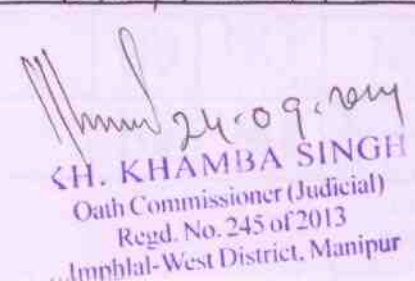 24.09.2014
KH. KHAMBA SINGH
Oath Commissioner (Judicial)
Regd. No. 245 of 2013
Imphlal-West District, Manipur